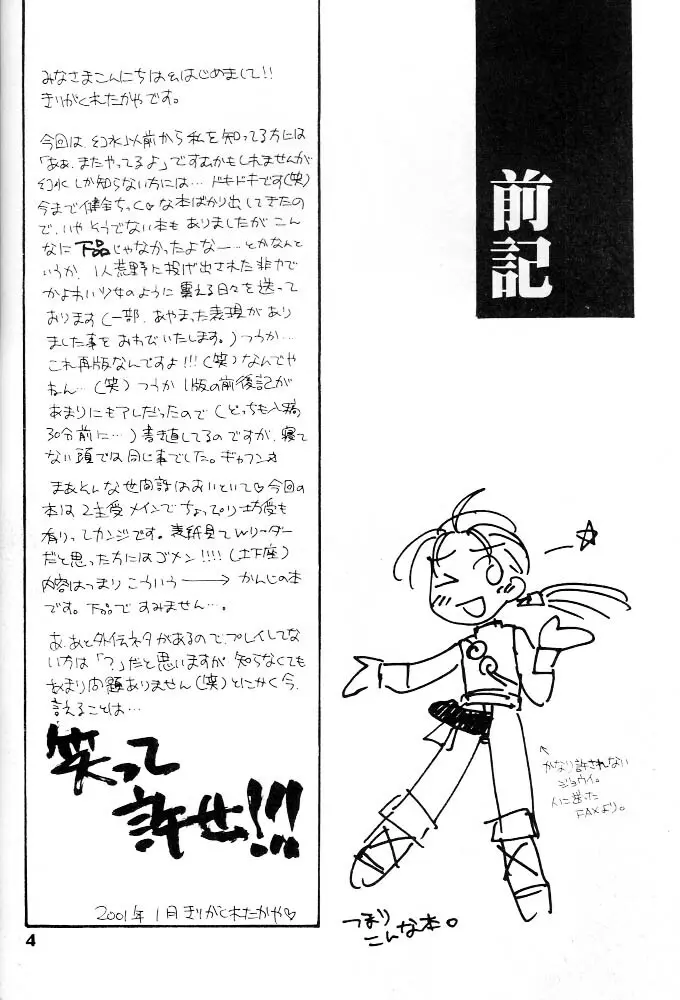 前記
みなさまこんにちは&はじめまして!!
きりがくれたかやです。
今回は、幻水以前から私を知ってる方には
「ああ、またやってるよ」ですむかもしれませんが
幻水しか知らない方には…ドキドキです(笑)
今まで健全ちっく♡な本ばかり出してきたの
で、いやそうでない本もありましたがこん
なに下品じゃなかったよなー…とかなんと
いうか、1人荒野に投げ出された非力で
かよわい少女のように震える日々を送って
おります(一部、あやまった表現があり
ました事をおわびいたします。)つうか…
これ再版なんですよ!!!(笑)なんでや
ねん…(笑)つうか1版の前後記が
あまりにもアレだったので(どっちも入稿
30分前に…)書き直してるのですが、寝て
ない頭では同じ事でした。ギャフン☆
まあそんな世間話はおいといて♡今回の
本は2主受メインでちょっぴり坊受も
有りってカンジです。表紙見てWリーダー
だと思った方にはゴメン!!!!(土下座)
内容はつまりこういう→かんじの本
です。下品ですみません…。
あ、あと外伝ネタがあるので、プレイしてな
い方は「?」だと思いますが知らなくても
あまり問題ありません(笑)とにかく今、
言えることは…
笑って
許せ!!!
2001年1月きりがくれたかや♡
4
かなり許されない
ジョウイ。
人に送った
FAXより。
つまり
こんな本。